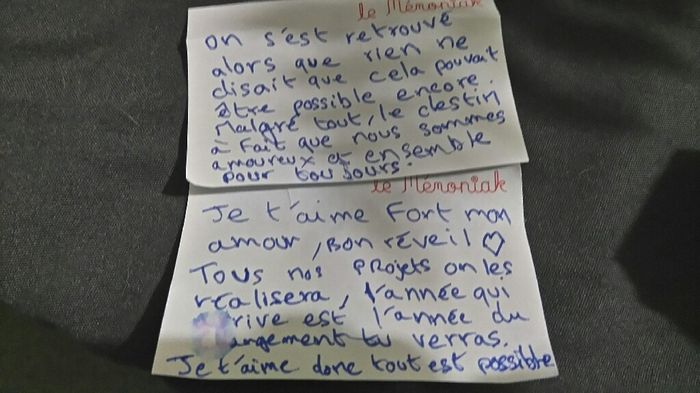 le Mémoniak
on s'est retrouvé
alors que rien ne
disait que cela pouvait
être possible encore.
Malgré tout, le destin
à fait que nous sommes
amoureux et ensemble
pour toujours.
le Mémoniak
Je t'aime Fort mon
amour, Bon réveil ♡
Tous nos projets on les
réalisera, l'année qui
rive est l'année du
angement tu verras.
Je t'aime donc tout est possible